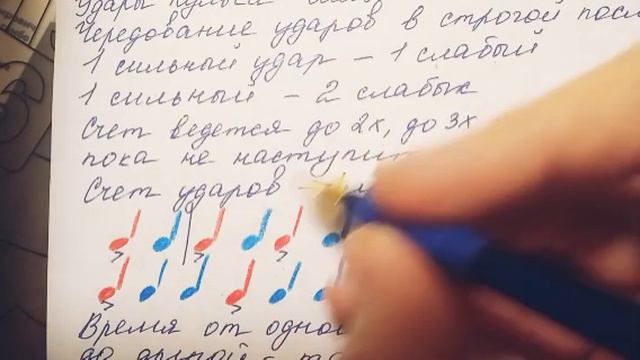 Удары пульса
Чередование ударов в строгой посл
1 сильный удар – 1 слабый
1 сильный – 2 слабых
Счет ведется до 2х, до 3х
пока не наступит
Счет ударов –
Время от одной
до другой –